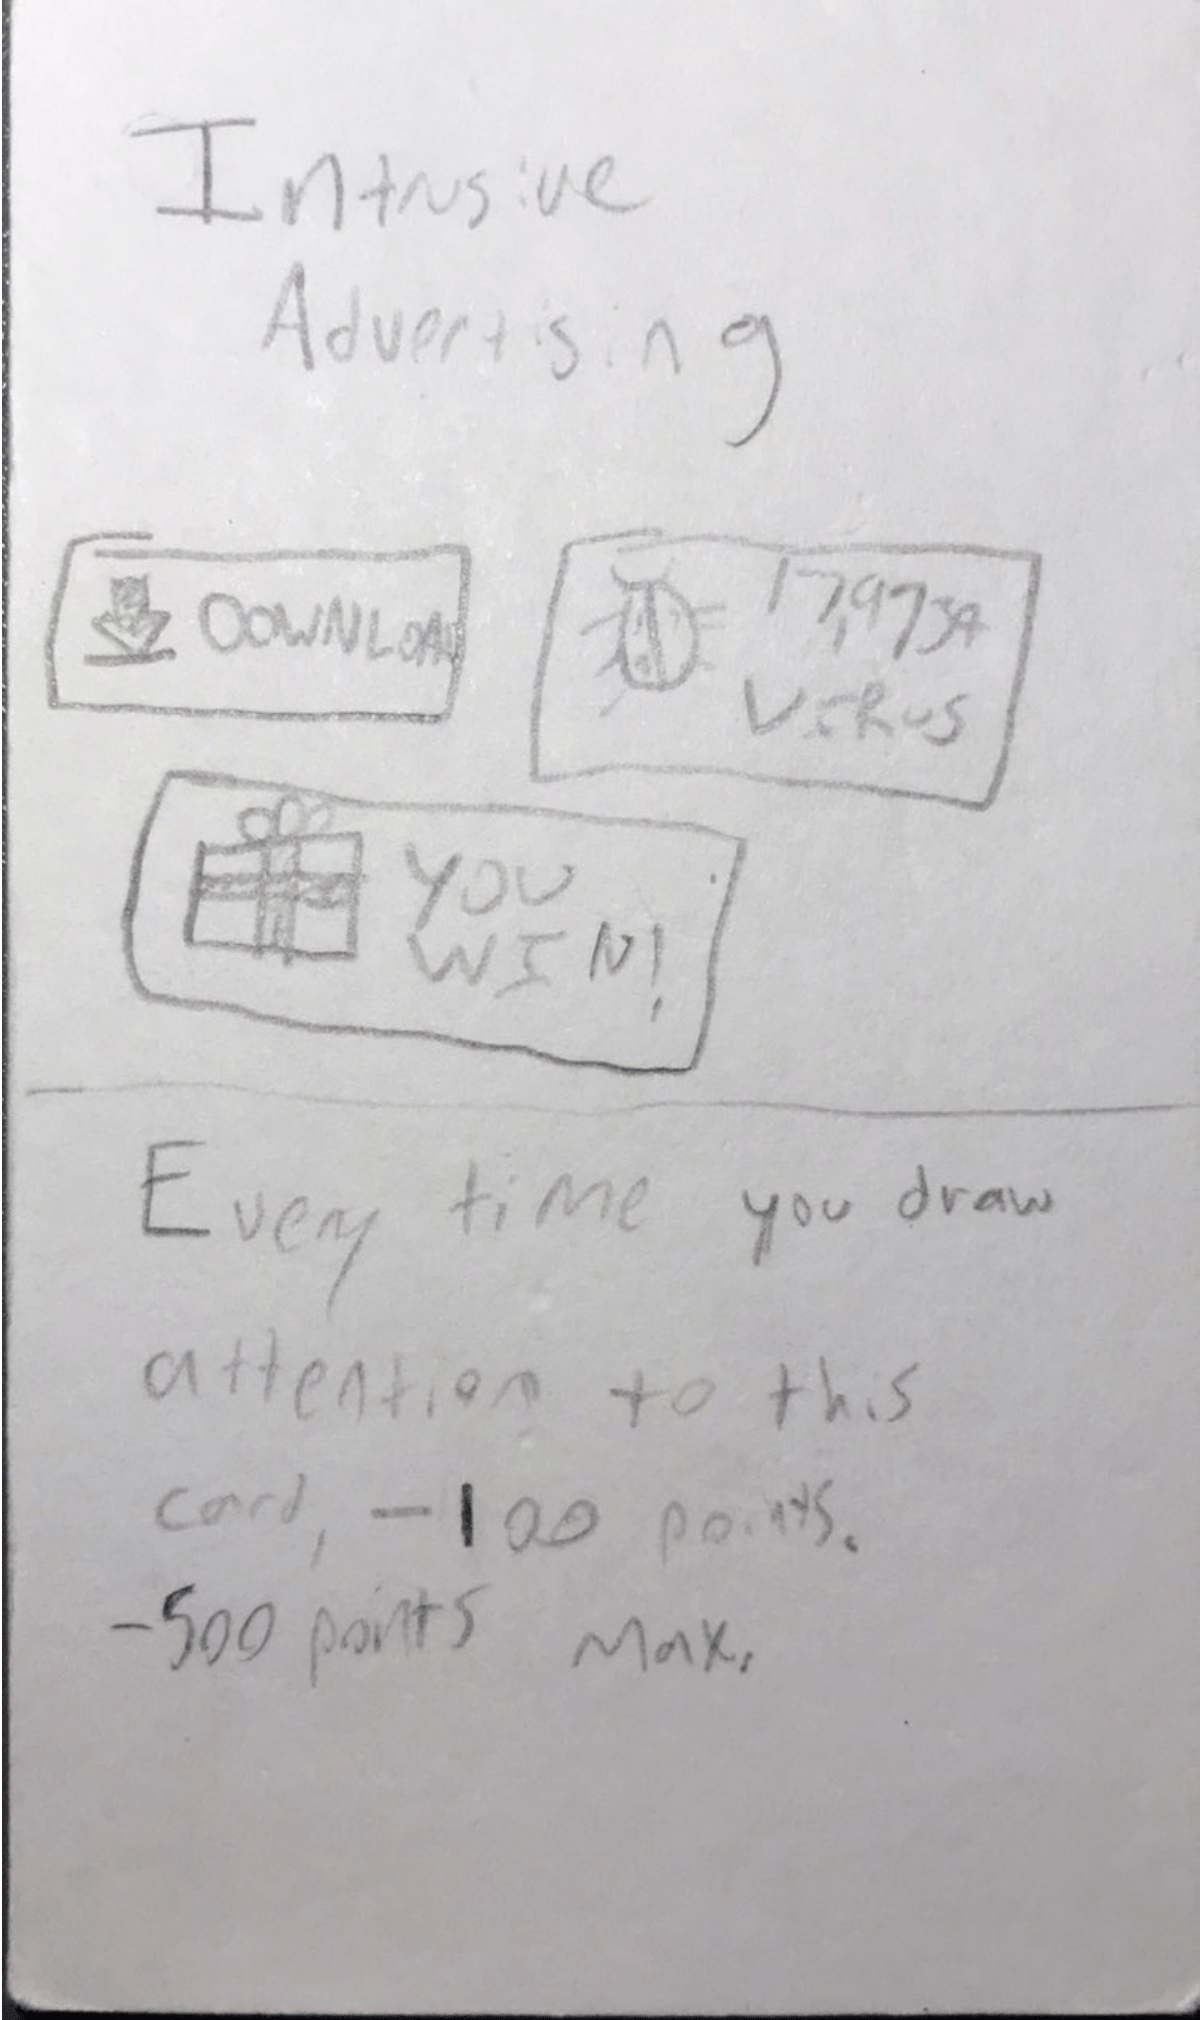 Intrusive
Advertising
DOWNLOAD
VIRUS
YOU
WIN!
Every time you draw
attention to this
card, -100 points.
-500 points max.